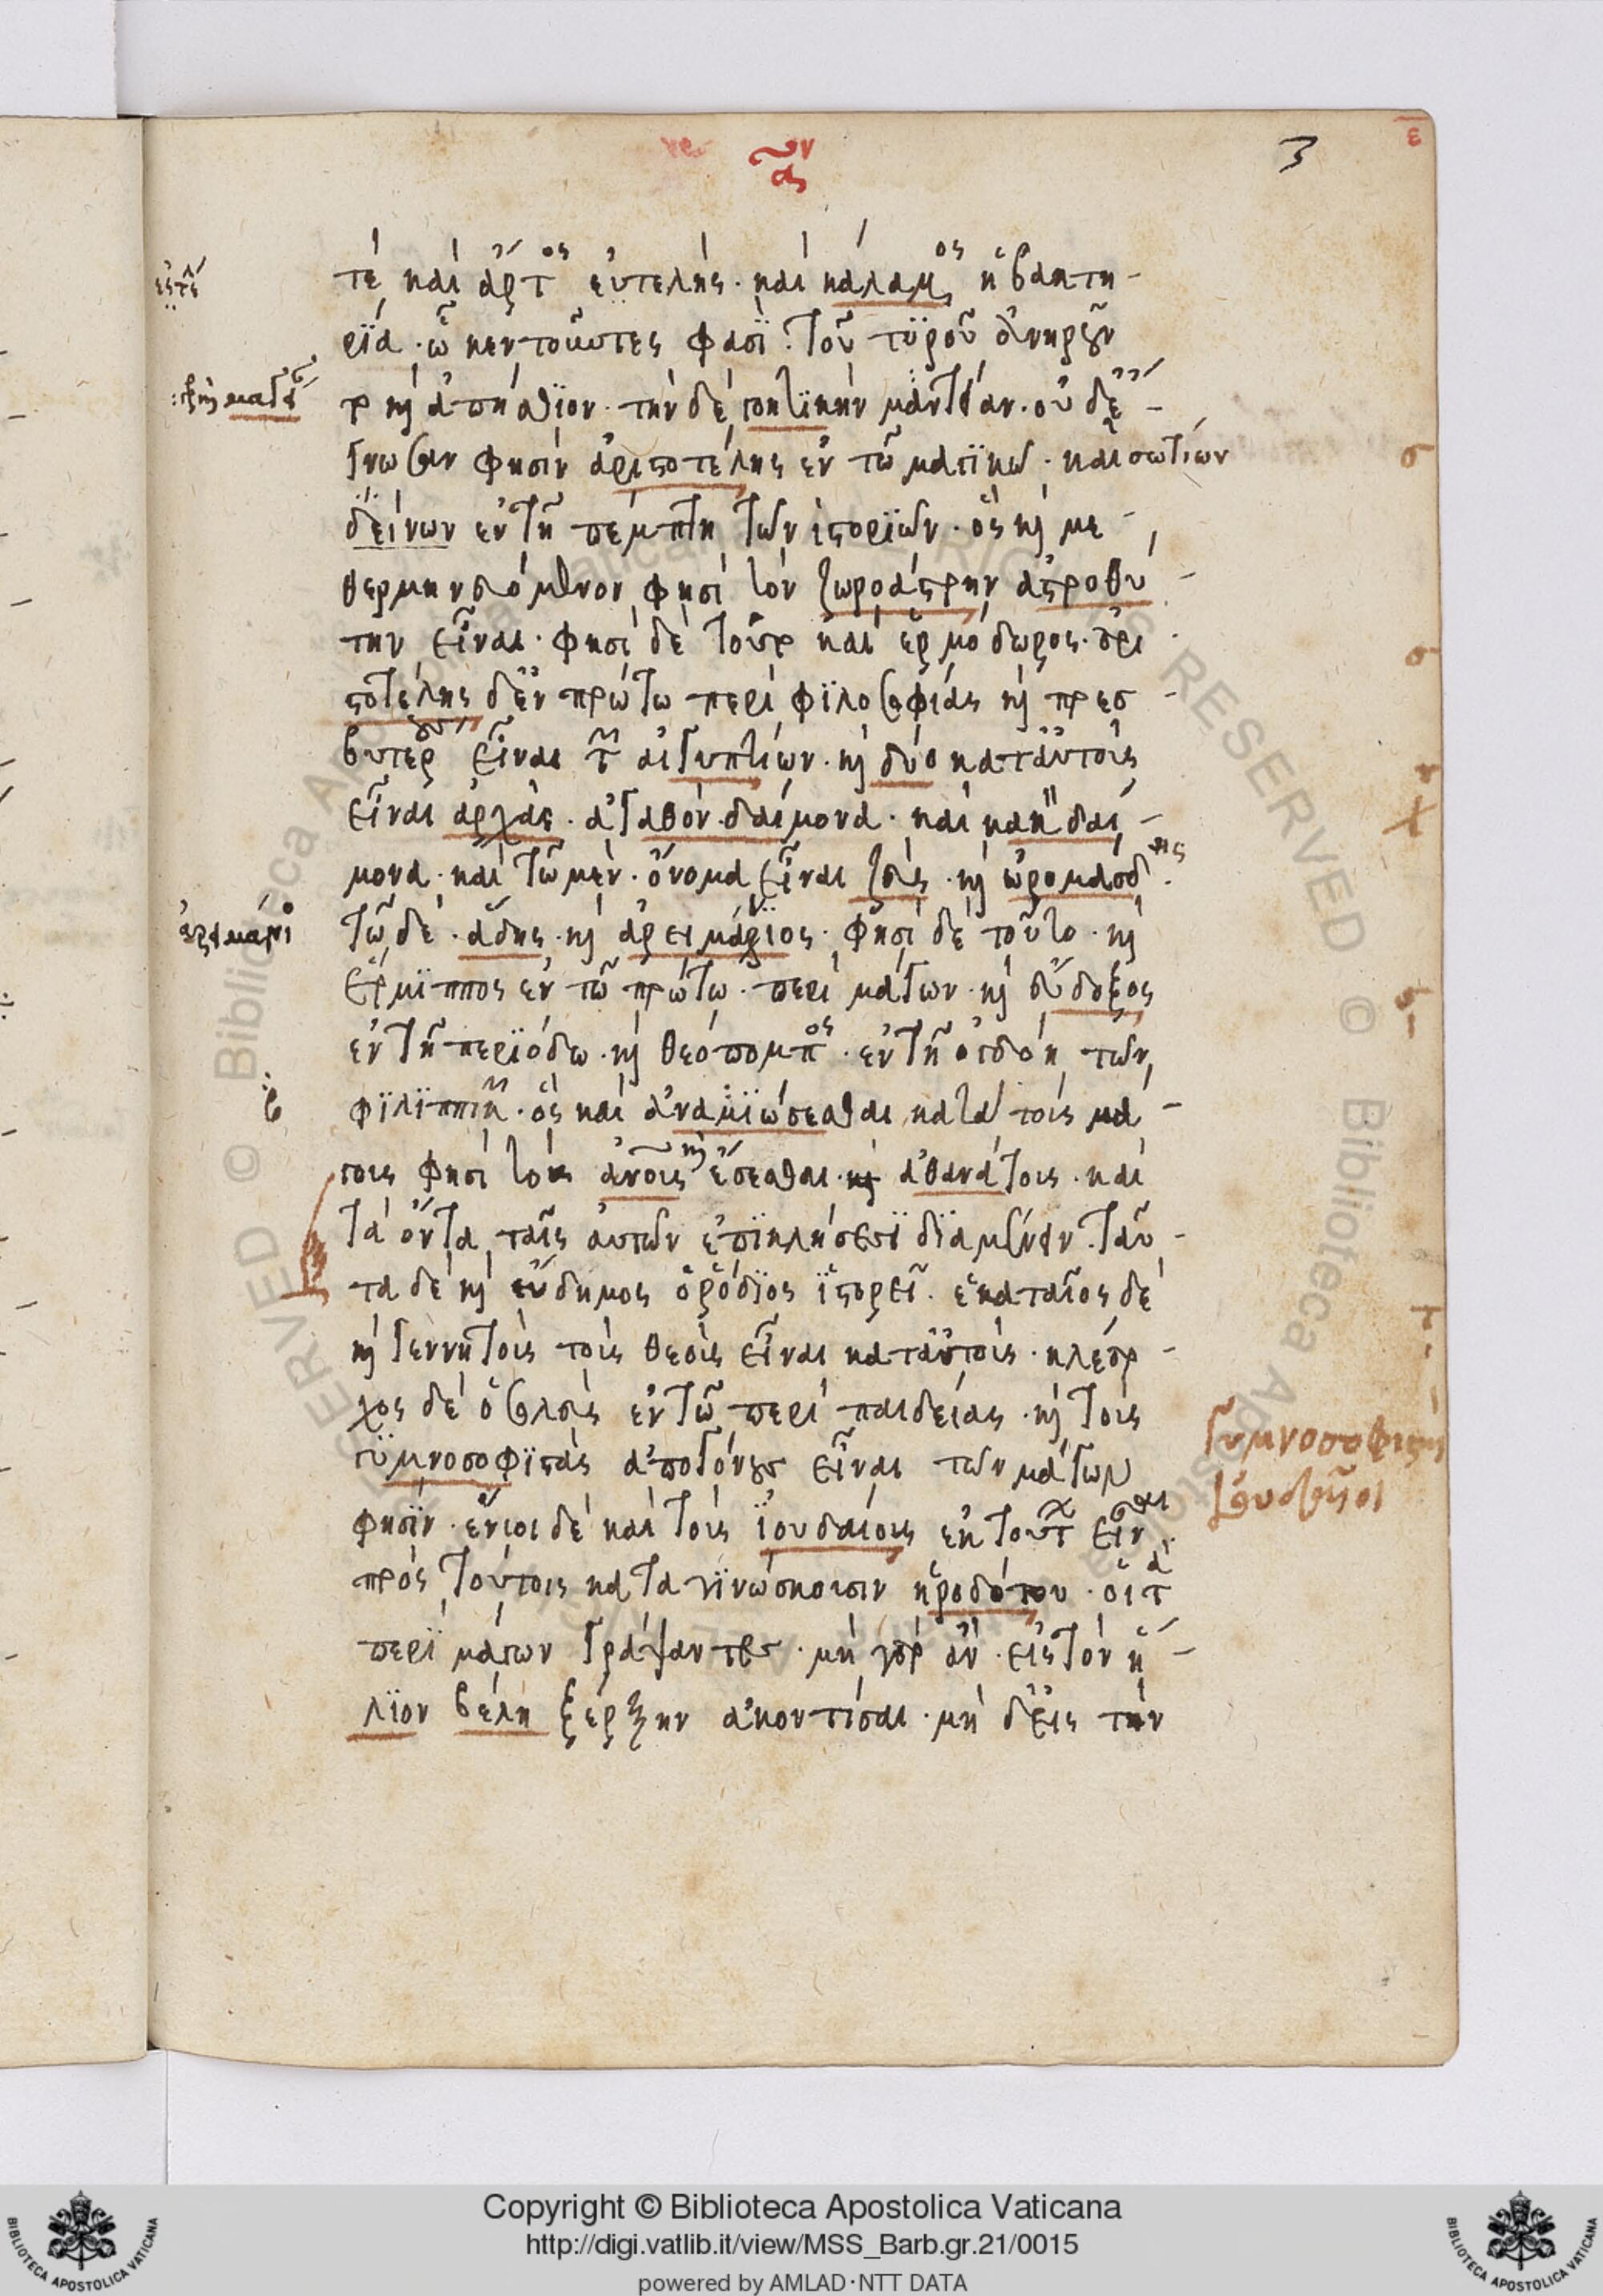 3
ε
τέ καὶ ἄρτος εὐτελής· καὶ κάλαμος ἡ βακτη-
ρία· ὧ κεντοῦντες φασὶ· τοῦ τυροῦ ἀνῃροῦν
το κὶ ἀπήσθιον· τὴν δὲ γοητικὴν μαντείαν· οὐδὲ-
γνωσαν φησὶν ἀριστοτέλης ἐν τῶ μαγικῶ· καὶ σωτίων
δείνων ἐν τῆ πέμπτη τῶν ἱστοριῶν· ὃς κὶ με-
θερμηνευόμενον φησὶ τὸν ζωροάστρην ἀστροθύ-
την εἶναι· φησὶ δὲ τοῦτο καὶ ἑρμόδωρος· ἀρι
στοτέλης δ' ἐν πρώτω περὶ φιλοσοφίας κὶ πρεσ-
βυτέρους εἶναι τῶν αἰγυπτίων· κὶ δύο κατ' αὐτοὺς
εἶναι ἀρχάς· ἀγαθὸν δαίμονα· καὶ κακὸν δαί-
μονα· καὶ τῶ μὲν· ὄνομα εἶναι ζεὺς· κὶ ὡρομάσδης·
τῶ δὲ· ἅδης· κὶ ἀρειμάνιος· φησὶ δὲ τοῦτο· κὶ
ἕρμιππος ἐν τῶ πρώτω· περὶ μάγων· κὶ εὔδοξος
ἐν τῆ περιόδω· κὶ θεόπομπος· ἐν τῆ ὀγδόη τῶν
φιλιππικῶν· ὃς καὶ ἀναβιώσεσθαι κατὰ τοὺς μά-
γους φησὶ τοὺς ἀνους κὶ ἔσεσθαι· ἀθανάτους· καὶ
τὰ ὄντα ταῖς αὐτῶν ἐπικλήσεσι διαμένειν· ταῦ-
τα δὲ κὶ εὔδημος ὁ ῥόδιος ἱστορεῖ· ἑκαταῖος δὲ
κὶ γεννητοὺς τοὺς θεοὺς εἶναι κατ' αὐτούς· κλέαρ-
χος δὲ ὁ σολεὺς ἐν τῶ περὶ παιδείας· κὶ τοὺς
γυμνοσοφιστὰς ἀπογόνους εἶναι τῶν μάγων
φησίν· ἔνιοι δὲ καὶ τοὺς ἰουδαίους ἐκ τούτων εἶναι·
πρὸς τούτοις καταγινώσκουσιν ἡροδότου· οἱ τὰ
περὶ μάγων γράψαντες· μὴ γὰρ ἂν· εἰς τὸν ἥ-
λιον βέλη ξέρξην ἀκοντίσαι· μὴ δ' εἰς τὴν
Copyright © Biblioteca Apostolica Vaticana
http://digi.vatlib.it/view/MSS_Barb.gr.21/0015
powered by AMLAD·NTT DATA